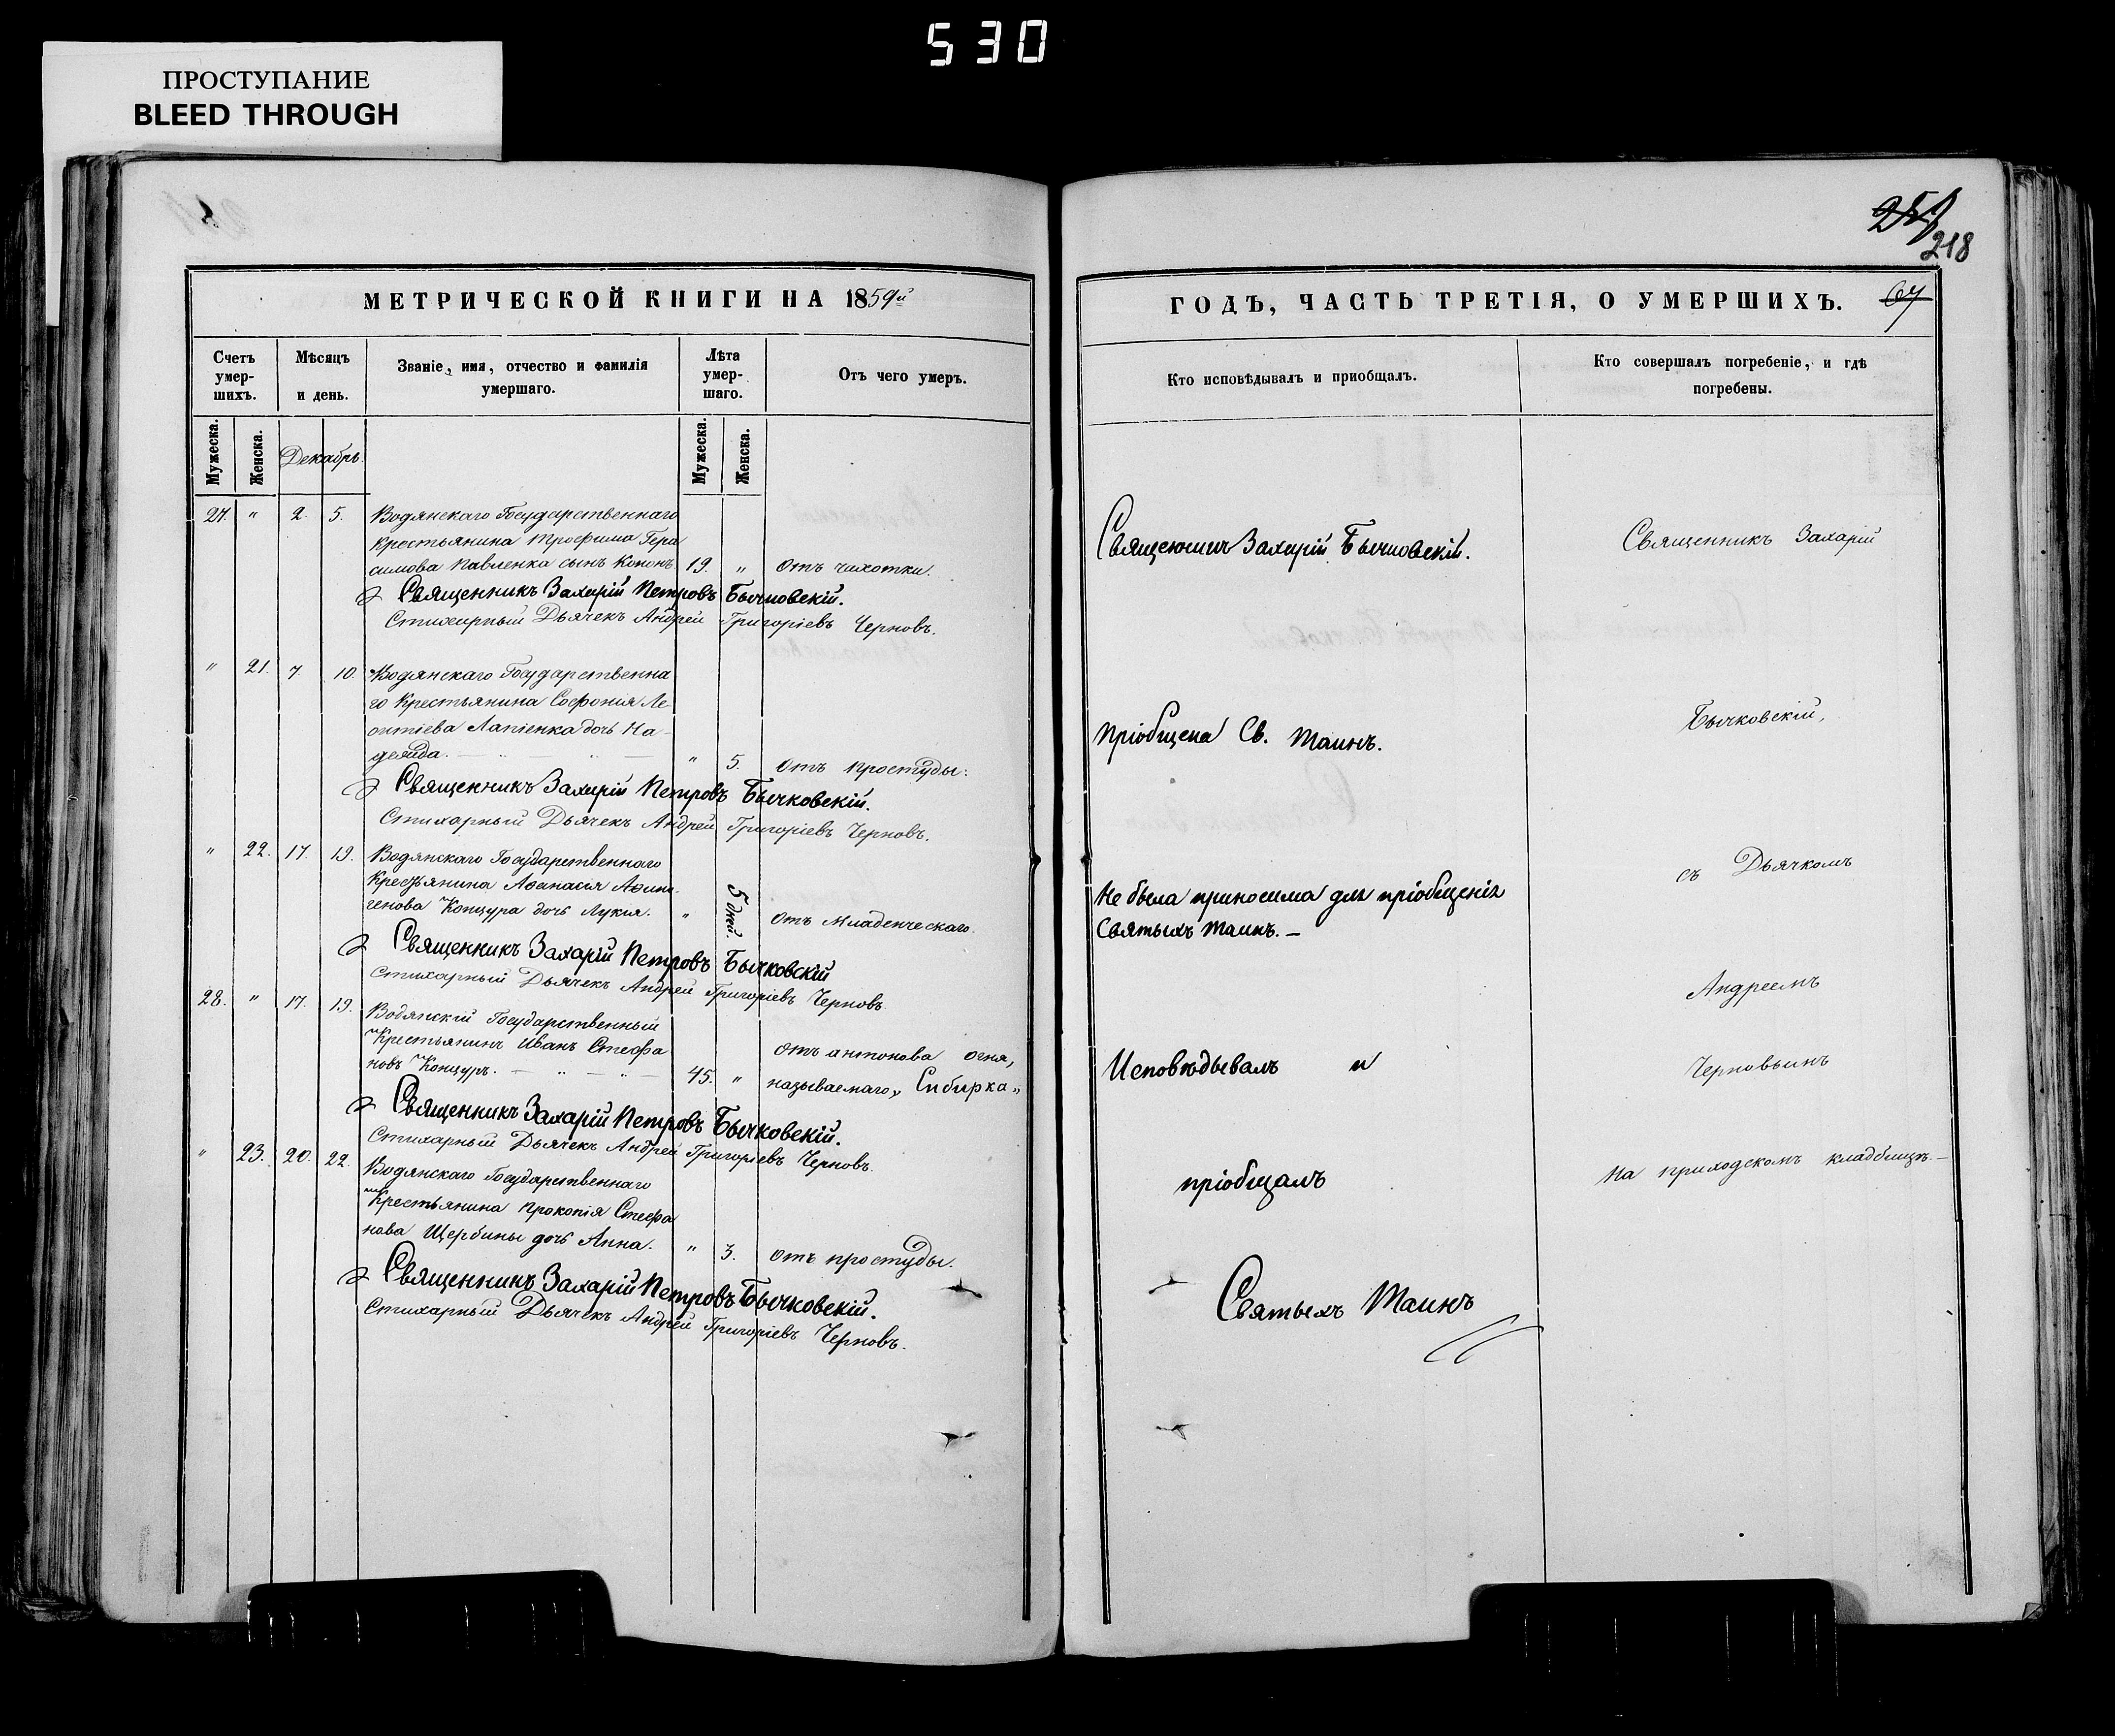 530
ПРОСТУПАНИЕ
BLEED THROUGH
218
МЕТРИЧЕСКОЙ КНИГИ НА 1859й
Счетъ умер-шихъ.
Мѣсяцъ и день.
Званіе, имя, отчество и фамилія умершаго.
Лѣта умер-шаго.
Отъ чего умеръ.
Мужеска.
Женска.
Декабрь.
Мужеска.
Женска.
27. " 2. 5. Водянскаго Государственнаго
Крестьянина Трофима Гера
симова Павленка сынъ Кононъ. 19. " Отъ чахотки.
Священникъ Захарій Петровъ Бычковскій.
Стихарный Дьячекъ Андрей Григоріевъ Черновъ.
" 21. 7. 10. Водянскаго Государственна
го Крестьянина Софонія Ле
онтіева Лапіенка дочь На-
дежда. " 5. Отъ простуды.
Священникъ Захарій Петровъ Бычковскій.
Стихарный Дьячекъ Андрей Григоріевъ Черновъ.
" 22. 17. 19. Водянскаго Государственнаго
Крестьянина Аѳанасія Аѳин
генова Концура дочь Лукія. " 5 дней. Отъ младенческаго.
Священникъ Захарій Петровъ Бычковскій
Стихарный Дьячекъ Андрей Григоріевъ Черновъ.
28. " 17. 19. Водянскій Государственный
Крестьянинъ Иванъ Стефа
новъ Концуръ. 45. " отъ антонова огня,
называемаго „Сибирка„
Священникъ Захарій Петровъ Бычковскій.
Стихарный Дьячекъ Андрей Григоріевъ Черновъ.
" 23. 20. 22. Водянскаго Государственнаго
Крестьянина Прокопія Стефа
нова Щербины дочь Анна. " 3. Отъ простуды.
Священникъ Захарій Петровъ Бычковскій.
Стихарный Дьячекъ Андрей Григоріевъ Черновъ.
ГОДЪ, ЧАСТЬ ТРЕТІЯ, О УМЕРШИХЪ. 67
Кто исповѣдывалъ и приобщалъ.
Кто совершалъ погребеніе, и гдѣ погребены.
Священникъ Захарій Бычковскій.
Пріобщена Св. Таинъ.
Не была приносима для пріобщенія
Святыхъ Таинъ. —
Исповѣдывалъ и
пріобщалъ
Святыхъ Таинъ
Священникъ Захарій
Бычковскій,
съ Дьячкомъ
Андреемъ
Черновымъ
На приходскомъ кладбищѣ.—